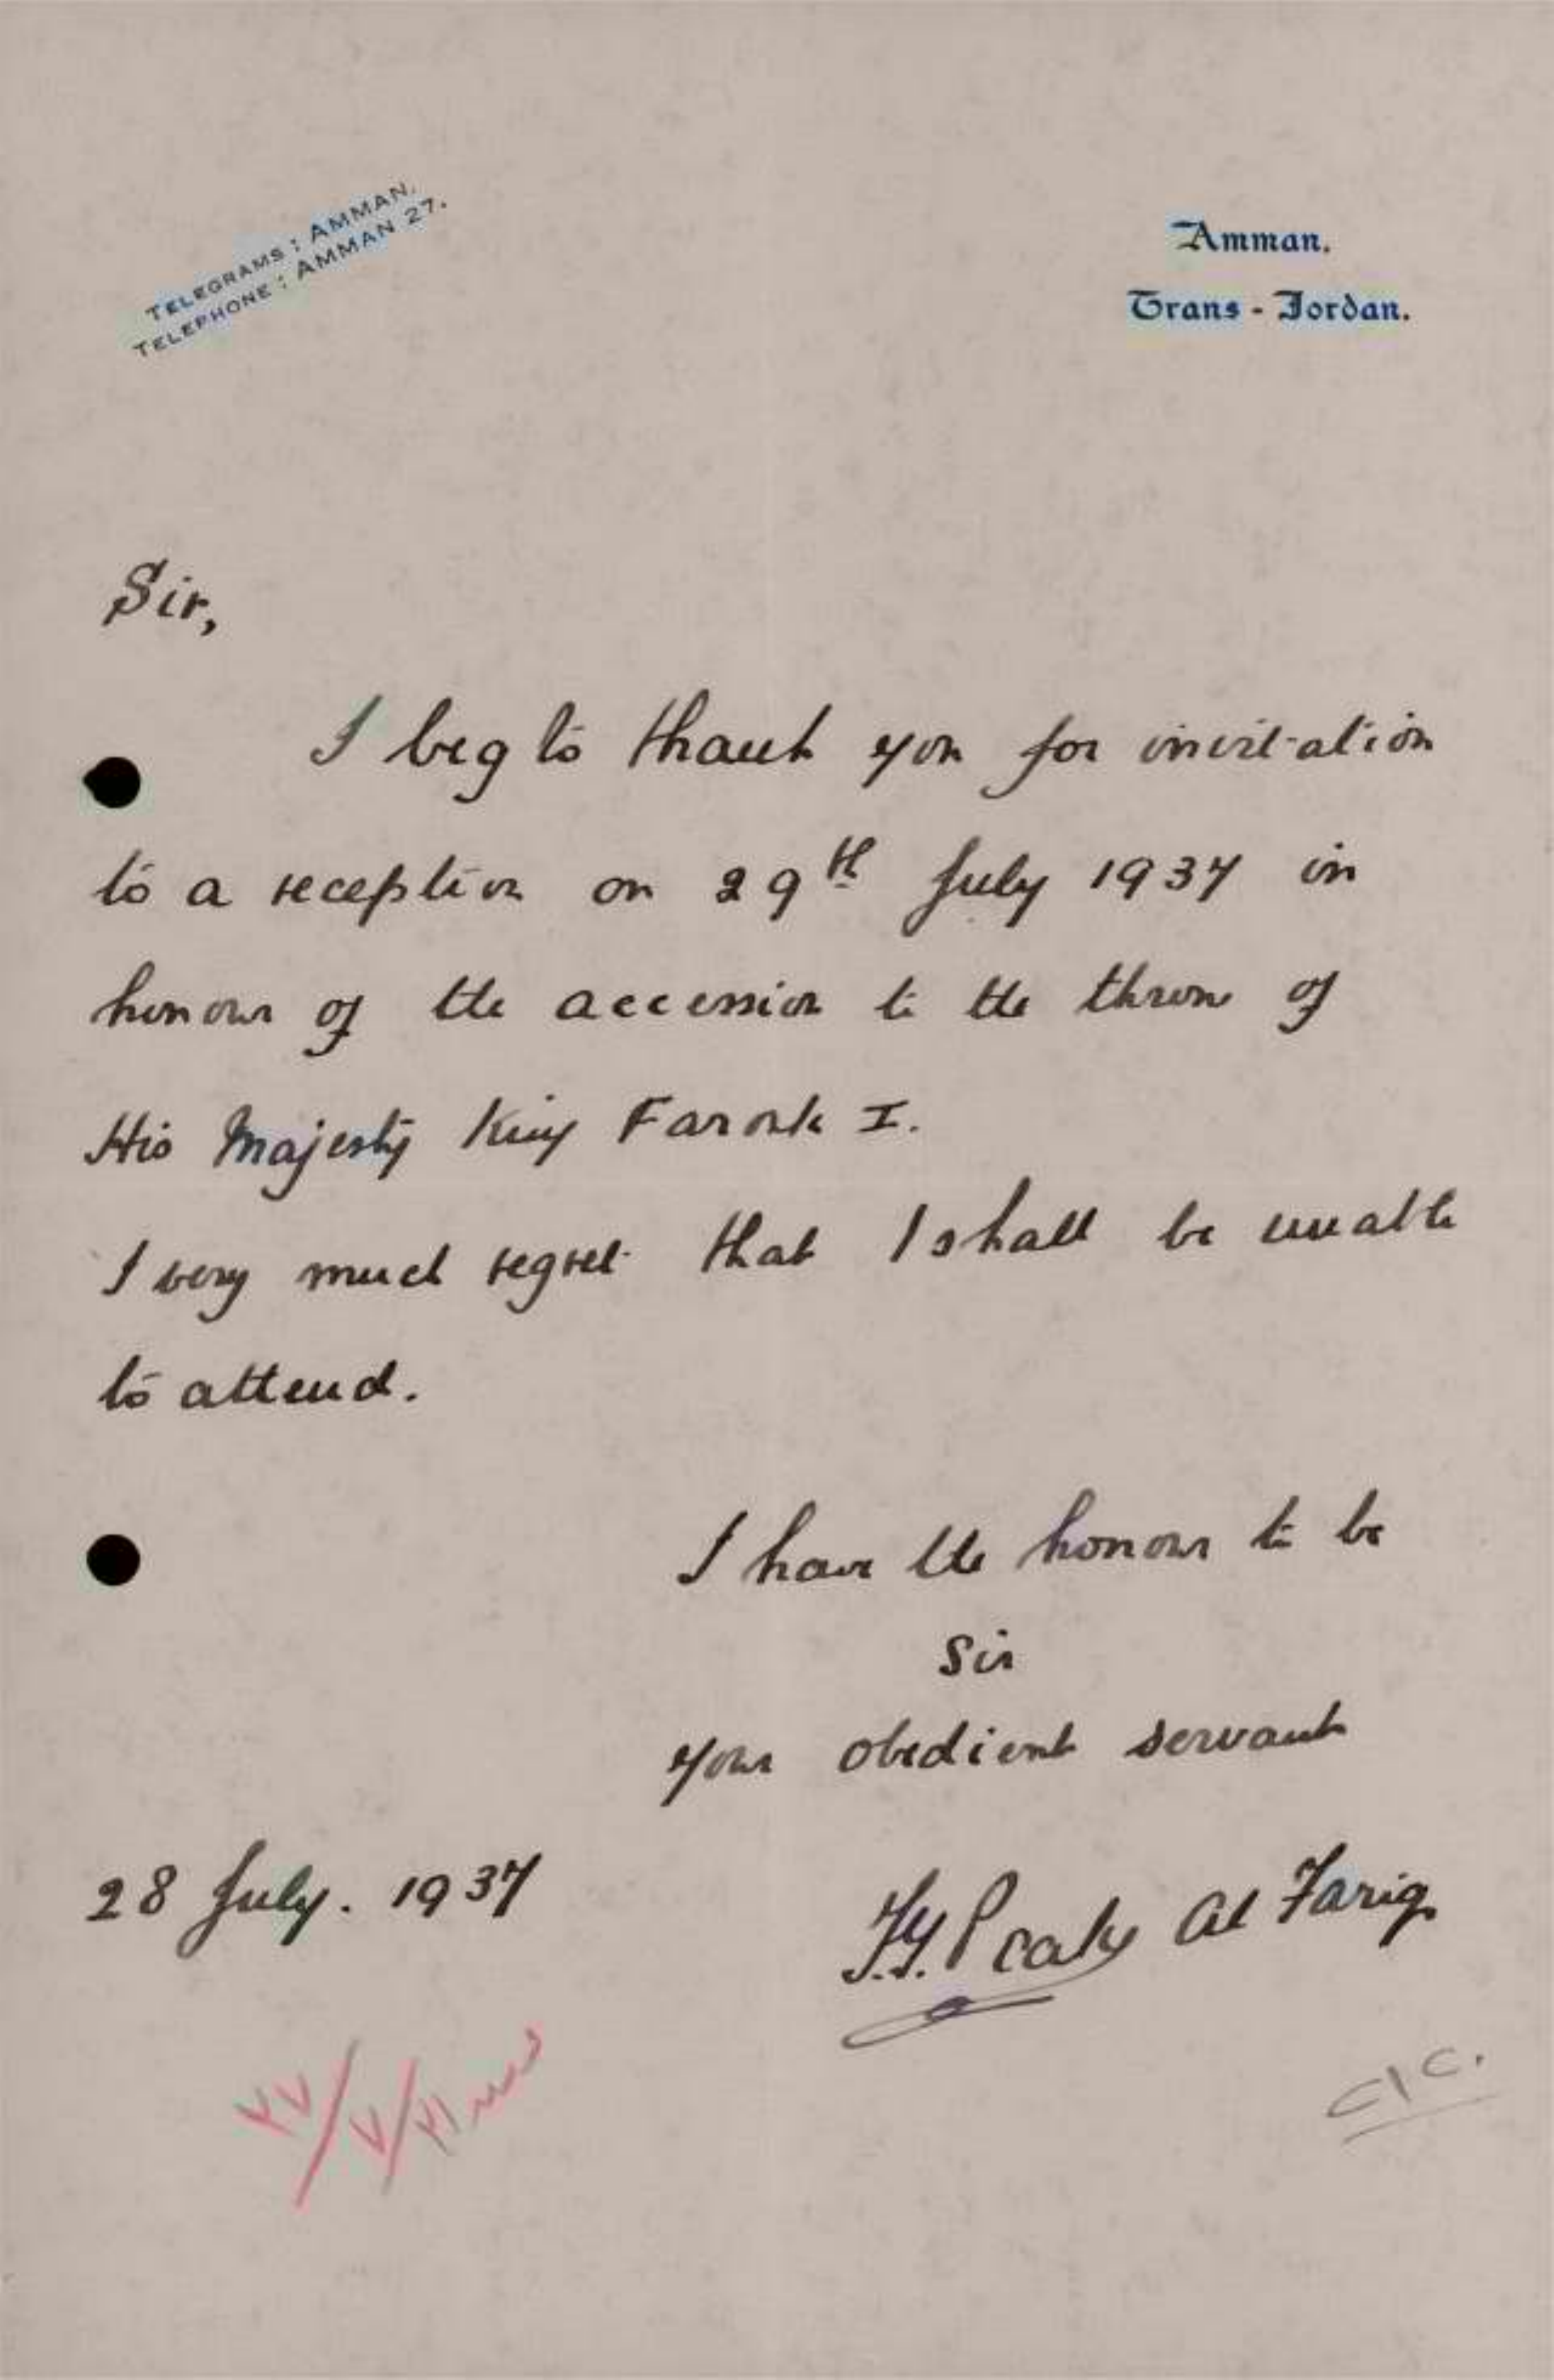 TELEGRAMS : AMMAN.
TELEPHONE : AMMAN 27.
Amman.
Trans - Jordan.
Sir,
I beg to thank you for invitation
to a reception on 29th July 1937 in
honour of the accession to the throne of
His Majesty King Farouk I.
I very much regret that I shall be unable
to attend.
I have the honour to be
Sir
your obedient servant
28 July. 1937
F.G. Peake Al Fariq
٣٧/٧/٣١